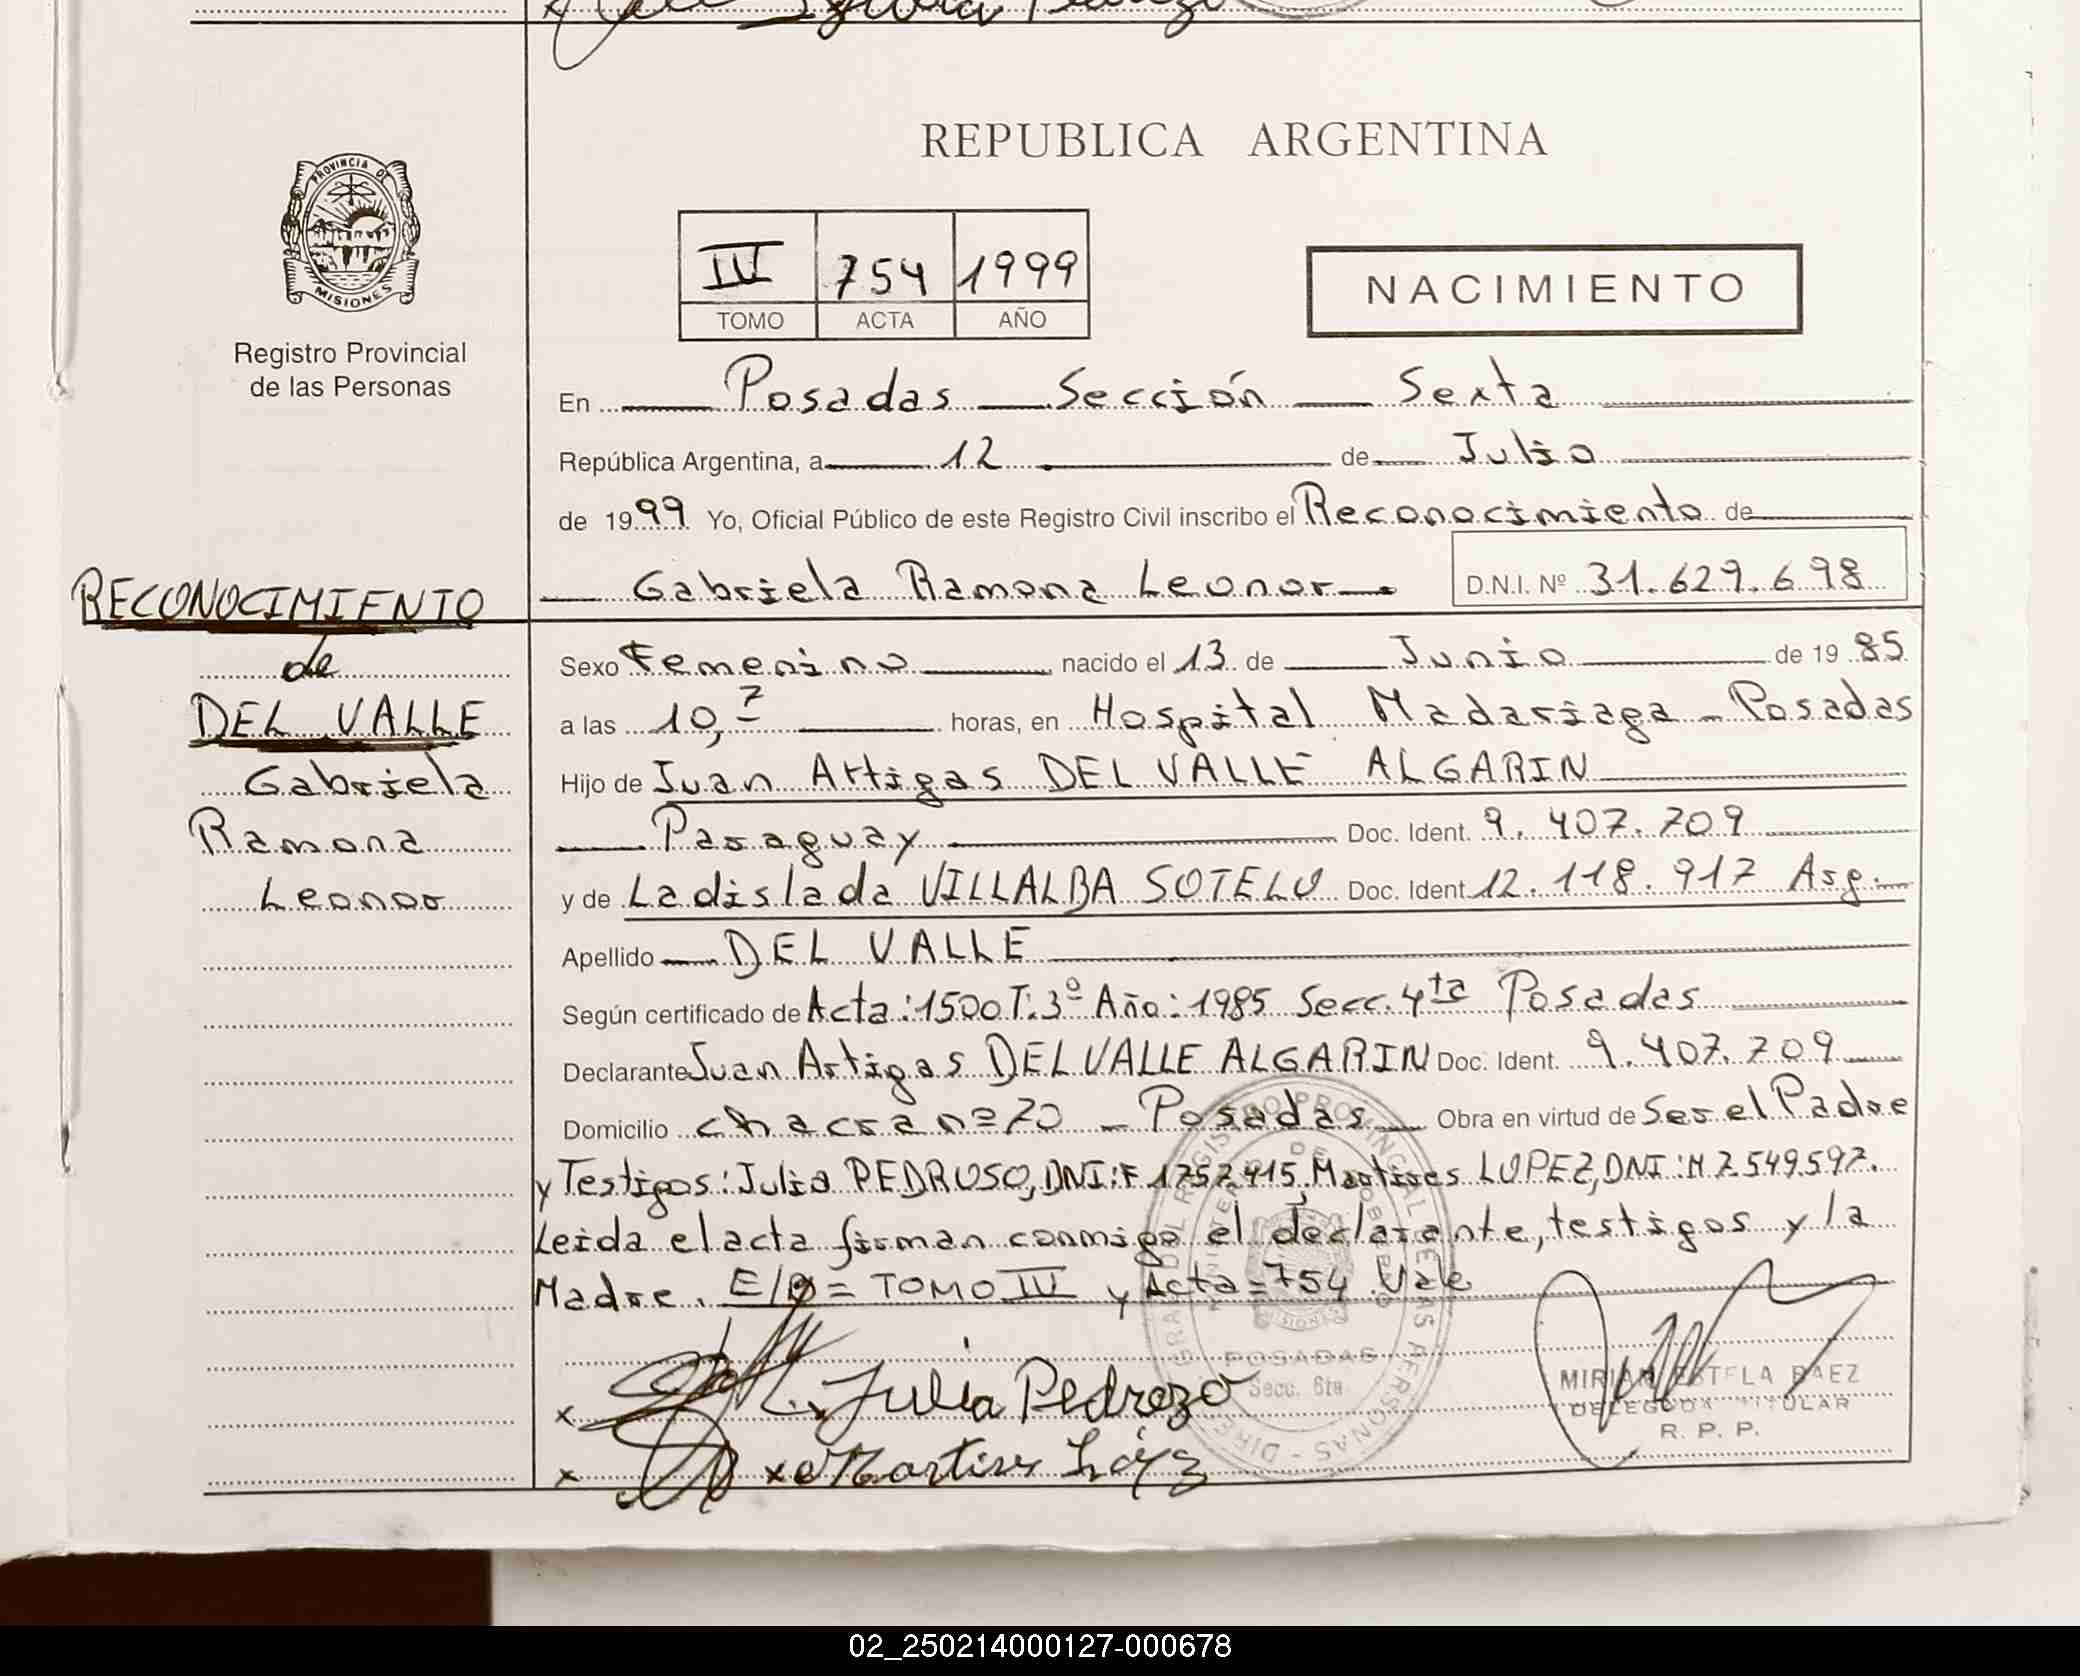 REPUBLICA ARGENTINA
PROVINCIA DE
MISIONES
Registro Provincial
de las Personas
IV 754 1999
TOMO ACTA AÑO
NACIMIENTO
En Posadas Sección Sexta
República Argentina, a 12 de Julio
de 1999 Yo, Oficial Público de este Registro Civil inscribo el Reconocimiento de
Gabriela Ramona Leonor D.N.I. Nº 31.629.698
RECONOCIMIENTO
de
DEL VALLE
Gabriela
Ramona
Leonor
Sexo Femenino nacido el 13 de Junio de 1985
a las 10, horas, en Hospital Madariaga - Posadas
Hijo de Juan Artigas DEL VALLE ALGARIN
Paraguay Doc. Ident. 9.407.709
y de Ladislada VILLALBA SOTELO Doc. Ident 12.118.917 Arg.
Apellido DEL VALLE
Según certificado de Acta: 1500 T: 3º Año: 1985 Secc. 4ta Posadas
Declarante Juan Artigas DEL VALLE ALGARIN Doc. Ident. 9.407.709
Domicilio chacra nº 70 - Posadas Obra en virtud de Ser el Padre
y Testigos: Julia PEDROSO, DNI: F 1757.415, Martires LOPEZ, DNI: M 7.549.597.
Leida el acta firman conmigo el declarante, testigos y la
Madre. E/R= TOMO IV y Acta=754 Vale
x Julia Pedrozo
x x Martires López
POSADAS
Secc. 6ta
MIRIAN ESTELA BAEZ
DELEGADA TITULAR
R. P. P.
02_250214000127-000678